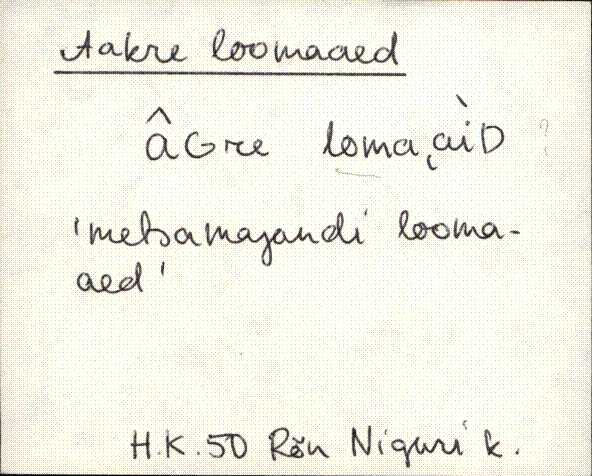 Aakre loomaaed
âGre loma,àiD ?
'metsamajandi looma-
aed'
H.K. 50 Rõn Niguri k.